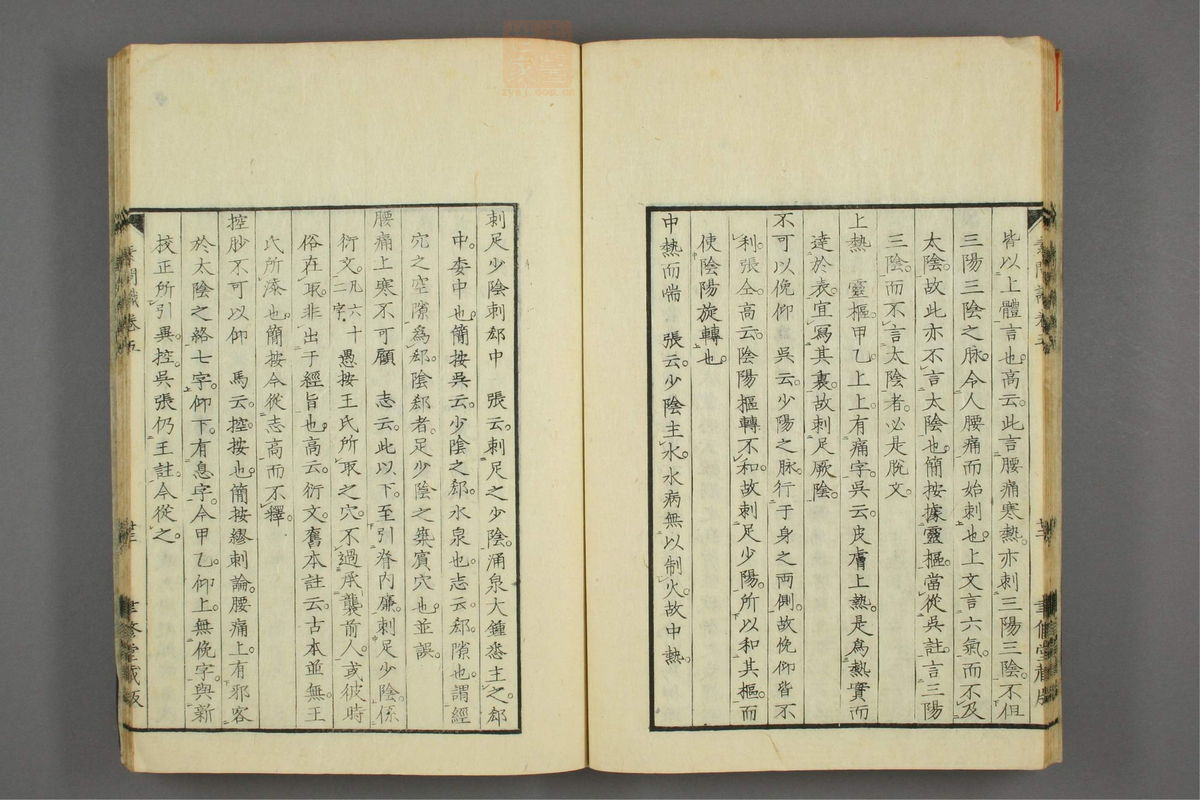 皆以上體言也。高云。此言腰痛寒熱。亦刺三陽三陰。不但
三陽三陰之脉。令人腰痛而始刺也。上文言六氣。而不及
太陰。故此亦不言太陰也。簡按據靈樞。當從吳註。言三陽
三陰。而不言太陰者。必是脫文。
上熱　靈樞。甲乙。上上有痛字。吳云。皮膚上熱。是爲熱實而
達於表。宜寫其裏。故刺足厥陰。
不可以俛仰　吳云。少陽之脉。行于身之兩側。故俛仰皆不
利。張仝。高云。陰陽樞轉不和。故刺足少陽。所以和其樞。而
使陰陽旋轉也。
中熱而喘　張云。少陰主水。水病無以制火。故中熱。
刺足少陰刺郄中　張云。刺足之少陰。涌泉大鍾悉主之。郄
中。委中也。簡按吳云。少陰之郄。水泉也。志云。郄隙也。謂經
穴之空隙爲郄。陰郄者。足少陰之築賓穴也。並誤。
腰痛上寒不可顧　志云。此以下。至引脊内廉。刺足少陰。係
衍文。凡六十二字。愚按王氏所取之穴。不過承襲前人。或彼時
俗在取。非出于經旨也。高云。衍文。舊本註云。古本並無。王
氏所添也。簡按今從志高而不釋。
控䏚不可以仰　馬云。控按也。簡按繆刺論。腰痛上。有邪客
於太陰之絡七字。仰下。有息字。今甲乙。仰上。無俛字。與新
挍正所引異。控。吳張仍王註。今從之。
素問識卷五
聿修堂藏版